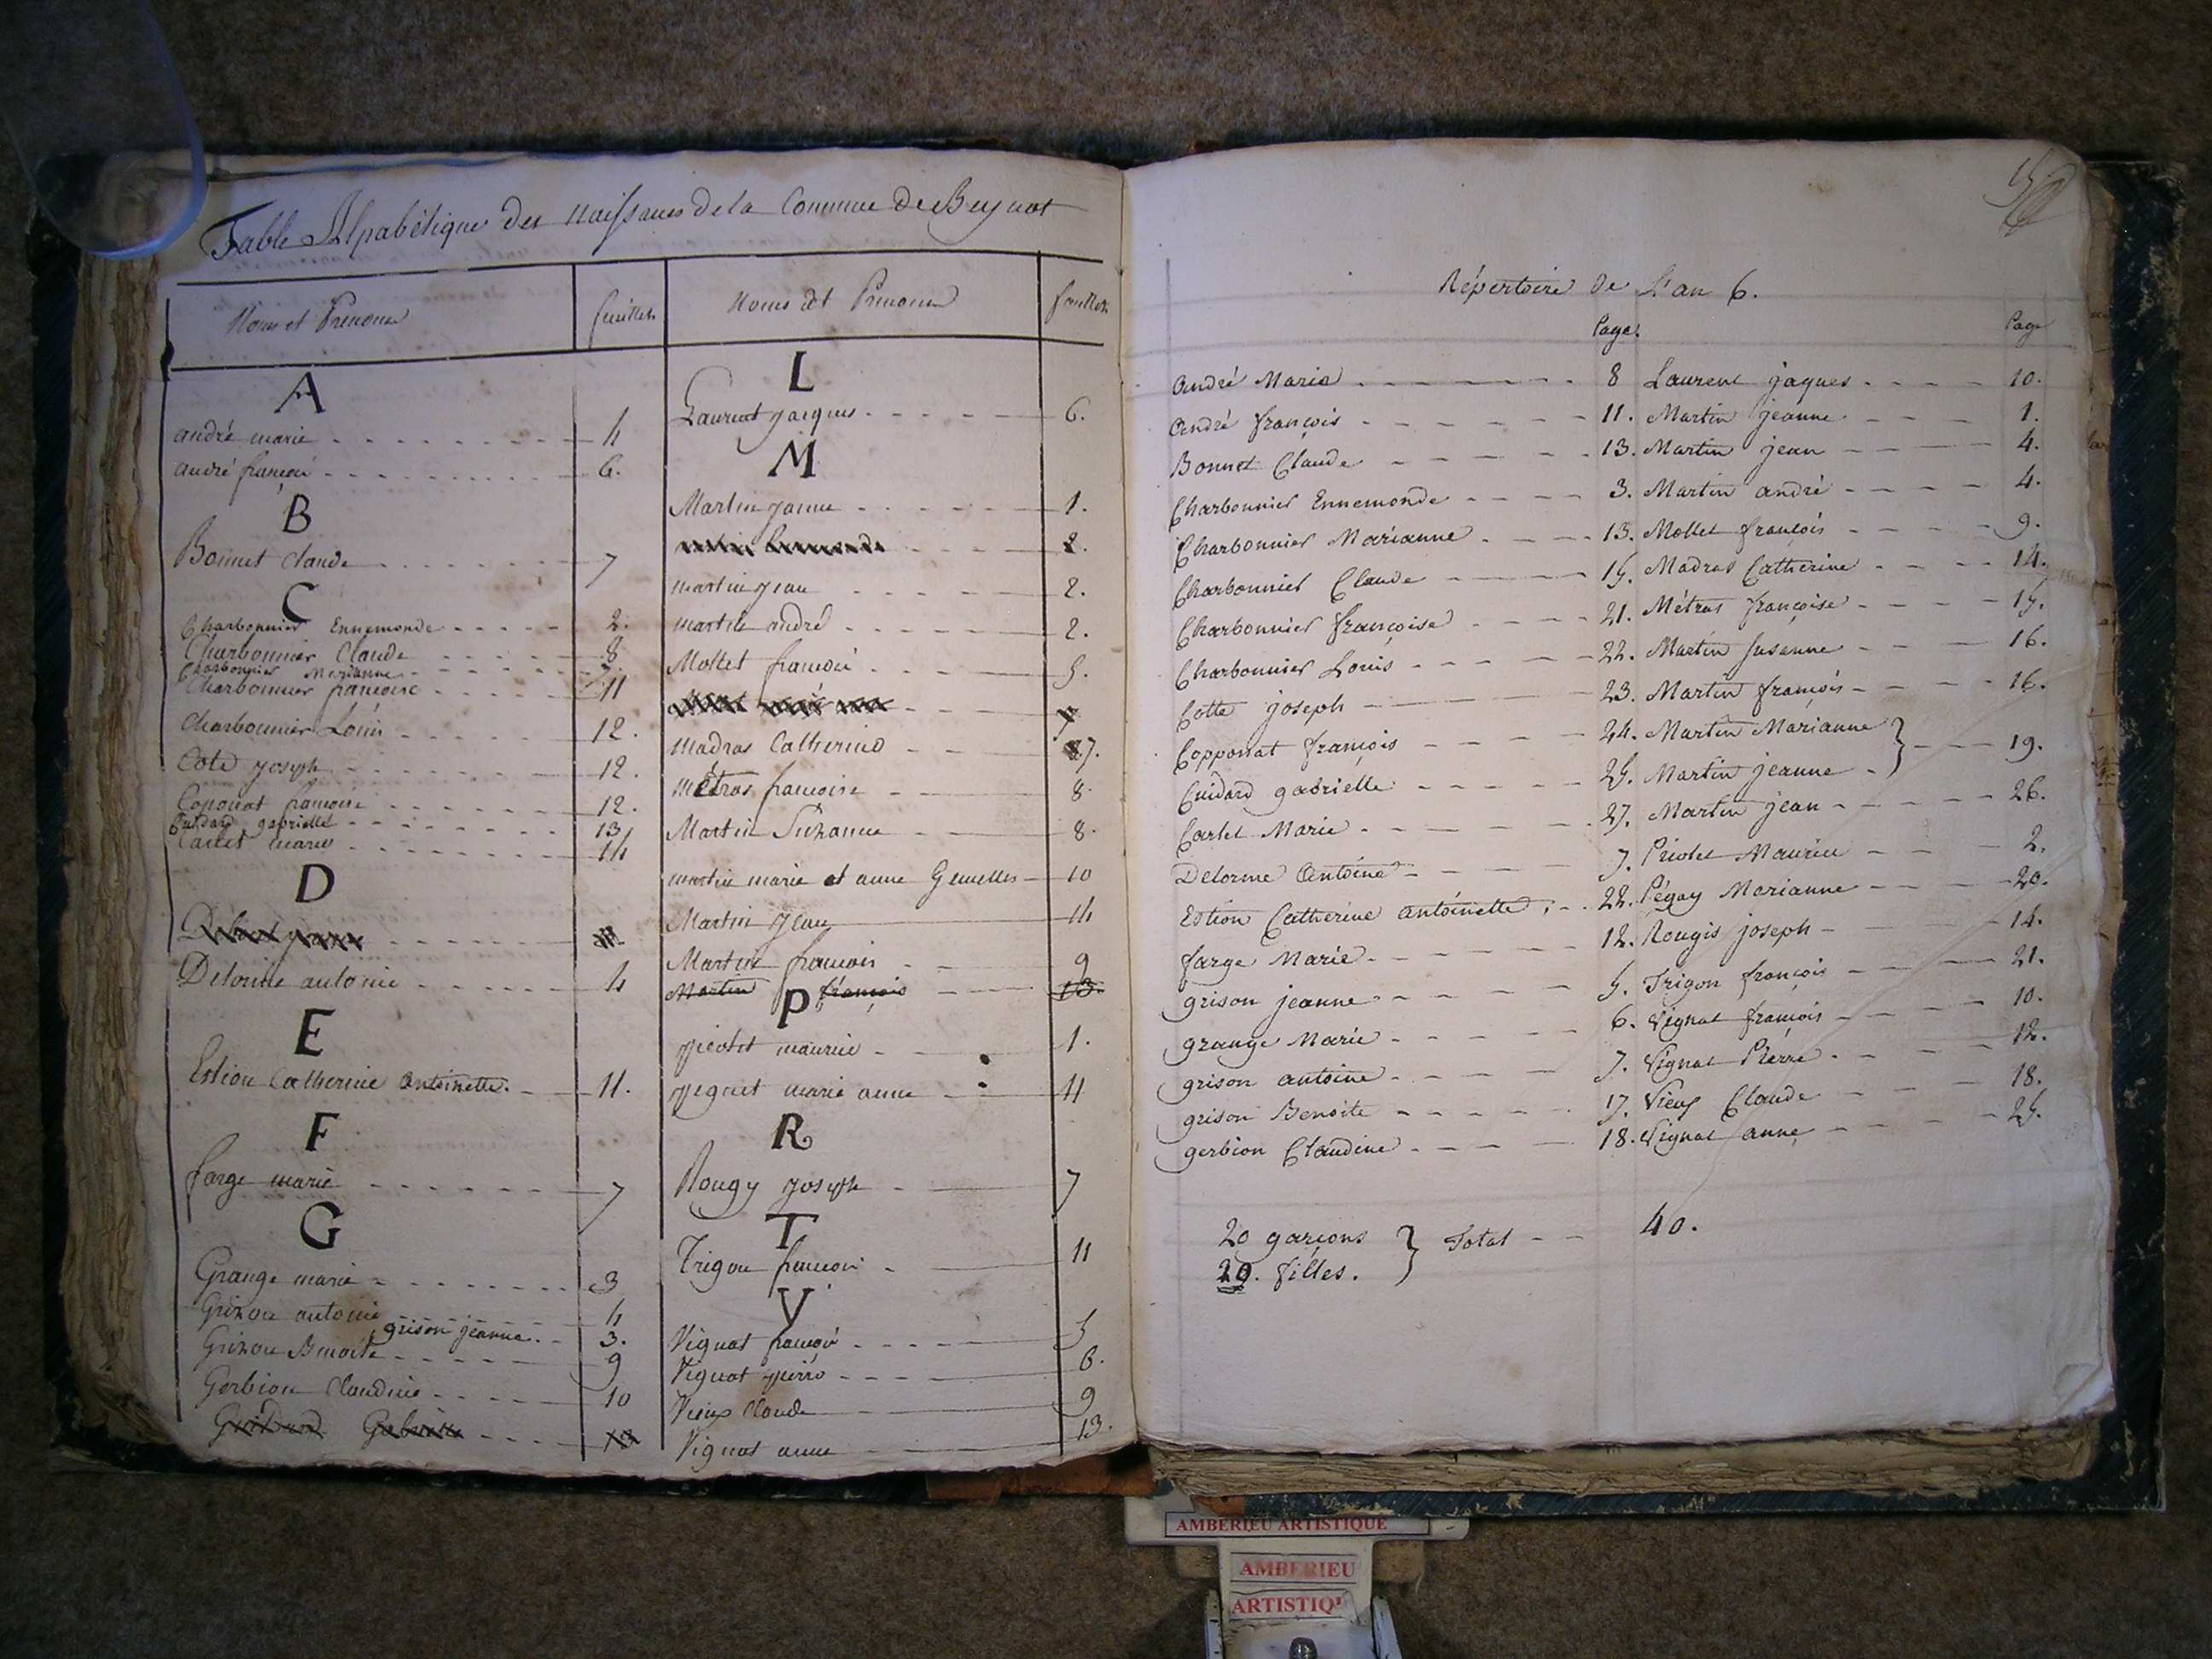 Table Alpabétique des Naissances de la Commune de Beynost
Noms et Prenoms
feuillets
Noms et Prenoms
feuillets
A
andré marie 4
andré françois 6.
B
Bonnet Claude 7
C
Charbonnier Ennemonde 2.
Charbonnier Claude 8
Charbonnier Marianne 7.
Charbonnier françoise 11
Charbonnier Louis 12.
Cote joseph 12.
Coponat françois 12.
Cuidard gabrielle 13
Carlet marie 14
D
Delorme antoine 4
E
Estion Catherine Antoinette. 11.
F
farge marie 7
G
Grange marie 3
Grizon antoine 4
grison jeanne. 3.
Grizon Benoite 9
Gerbion Claudine 10
Guidard Gabrielle
L
Laurent jacques 6.
M
Martin jeanne 1.
2.
martin jean 2.
martin andré 2.
Mollet françois 5.
madras Catherine 7.
métras françoise 8.
Martin Suzanne 8.
martin marie et anne Gemelles 10
Martin jean 14
Martin francois 9
Martin françois 13.
P
picolet maurice 1.
peguet marie anne 11
R
Rougy joseph 7
T
Trigon françois 11
V
Vignat françois 5
Vignat pierre 6.
Vieux Claude 9
Vignat anne 13.
Répertoire de L'an 6.
Page.
Page
André Marie 8
André françois 11.
Bonnet Claude 13.
Charbonnier Ennemonde 3.
Charbonnier Marianne 13.
Charbonnier Claude 15.
Charbonnier françoise 21.
Charbonnier Louis 22.
Cotte joseph 23.
Copponat françois 24.
Cuidard gabrielle 25.
Carlet Marie 27.
Delorme Antoine 7.
Estion Catherine Antoinette 22.
farge Marie 12.
grison jeanne 5.
grange Marie 6.
grison antoine 7.
grison Benoite 17.
gerbion Claudine 18.
Laurent jaques 10.
Martin jeanne 1.
Martin jean 4.
Martin andré 4.
Mollet françois 9.
Madras Catherine 14.
Métras françoise 15.
Martin Susanne 16.
Martin françois 16.
Martin Marianne
Martin jeanne } 19.
Martin jean 26.
Picolet Maurice 2.
Pégay Marianne 20.
Rougis joseph 14.
Trigon françois 21.
Vignat françois 10.
Vignat Pierre 12.
Vieux Claude 18.
Vignat anne 25.
20 garçons
20. filles. } Total 40.
AMBERIEU ARTISTIQUE
AMBERIEU
ARTISTIQ